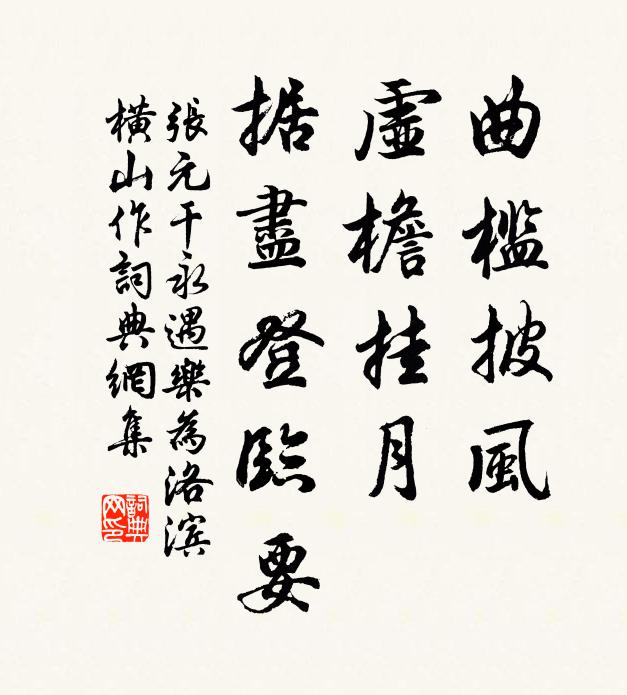 曲檻披風
虛檐挂月
据盡登臨要
張元干永遇樂為洛滨
橫山作詞典網集
詞典网印